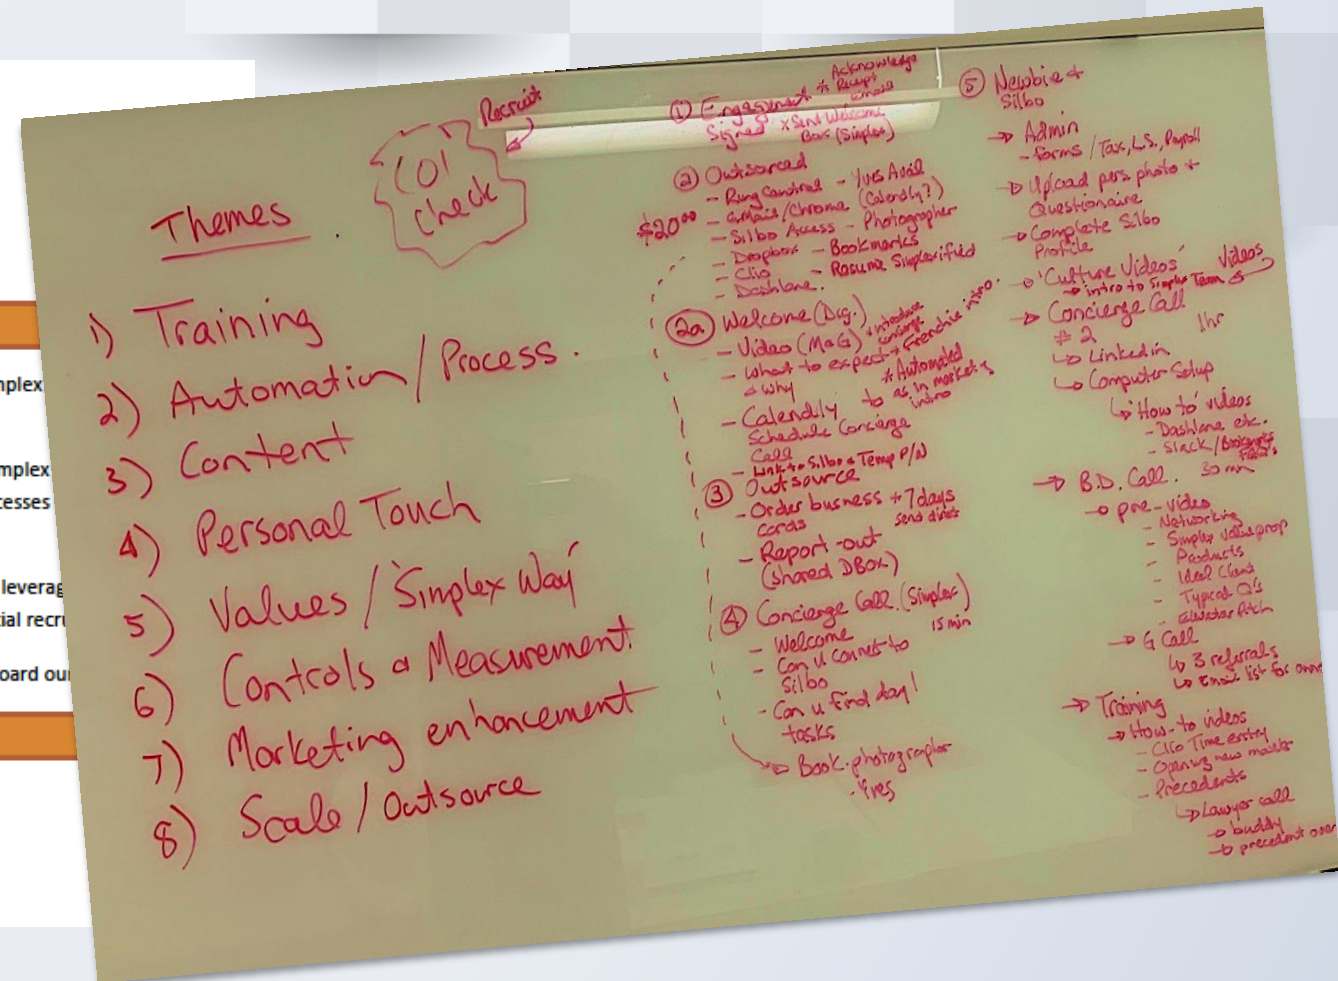 mplex
mplex
cesses
leverag
cial recru
oard our
Recruit
COI
check
Themes
1) Training
2) Automation / Process.
3) Content
4) Personal Touch
5) Values / 'Simplex Way'
6) Controls & Measurement.
7) Marketing enhancement
8) Scale / Outsource
① Engagement * Acknowledge
Receipt
Emails
Signed * Sent Welcome
Box (Simplex)
② Outsorced
- Ring Central - Yves Avail
$20⁰⁰ - Gmail/Chrome (Calendly?)
- Silbo Access - Photographer
- Dropbox - Bookmarks
- Clio - Resume Simplexified
- Dashlane.
②a Welcome (Dig.)
- Video (MaG) * introduce
concierge
- What to expect + Frenchie intro.
& Why
* Automated
to as in market's
intro
- Calendily
Schedule Concierge
Call
- Link to Silbo & Temp P/W
③ Outsource
- Order business + 7 days
cards send direct
- Report-out
(shared DBox)
④ Concierge Call. (Simplex)
- Welcome 15 min
- Can u connect to
Silbo
- Can u find day 1
tasks
→ Book photographer
- Yves
⑤ Newbie +
Silbo
→ Admin
- forms / Tax, L.S., Payroll
→ Upload pers. photo +
Questionaire
→ Complete Silbo
Profile
→ 'Culture Videos'
→ intro to Simplex Team Videos
→ Concierge Call
# 2 1hr
↳ Linkedin
↳ Computer Setup
↳ 'How to' videos
- Dashlane etc.
- Slack / Bookmarks
FAQ's
→ B.D. Call. 30 min
→ pre-video
- Networking
- Simplex value prop
- Products
- Ideal Client
- Typical Q's
- Elevator Pitch
→ G Call
↳ 3 referrals
↳ Email list for
→ Training
→ How-to videos
- Clio Time entry
- Opening new matters
- Precedents
↳ Lawyer call
→ buddy
→ precedent